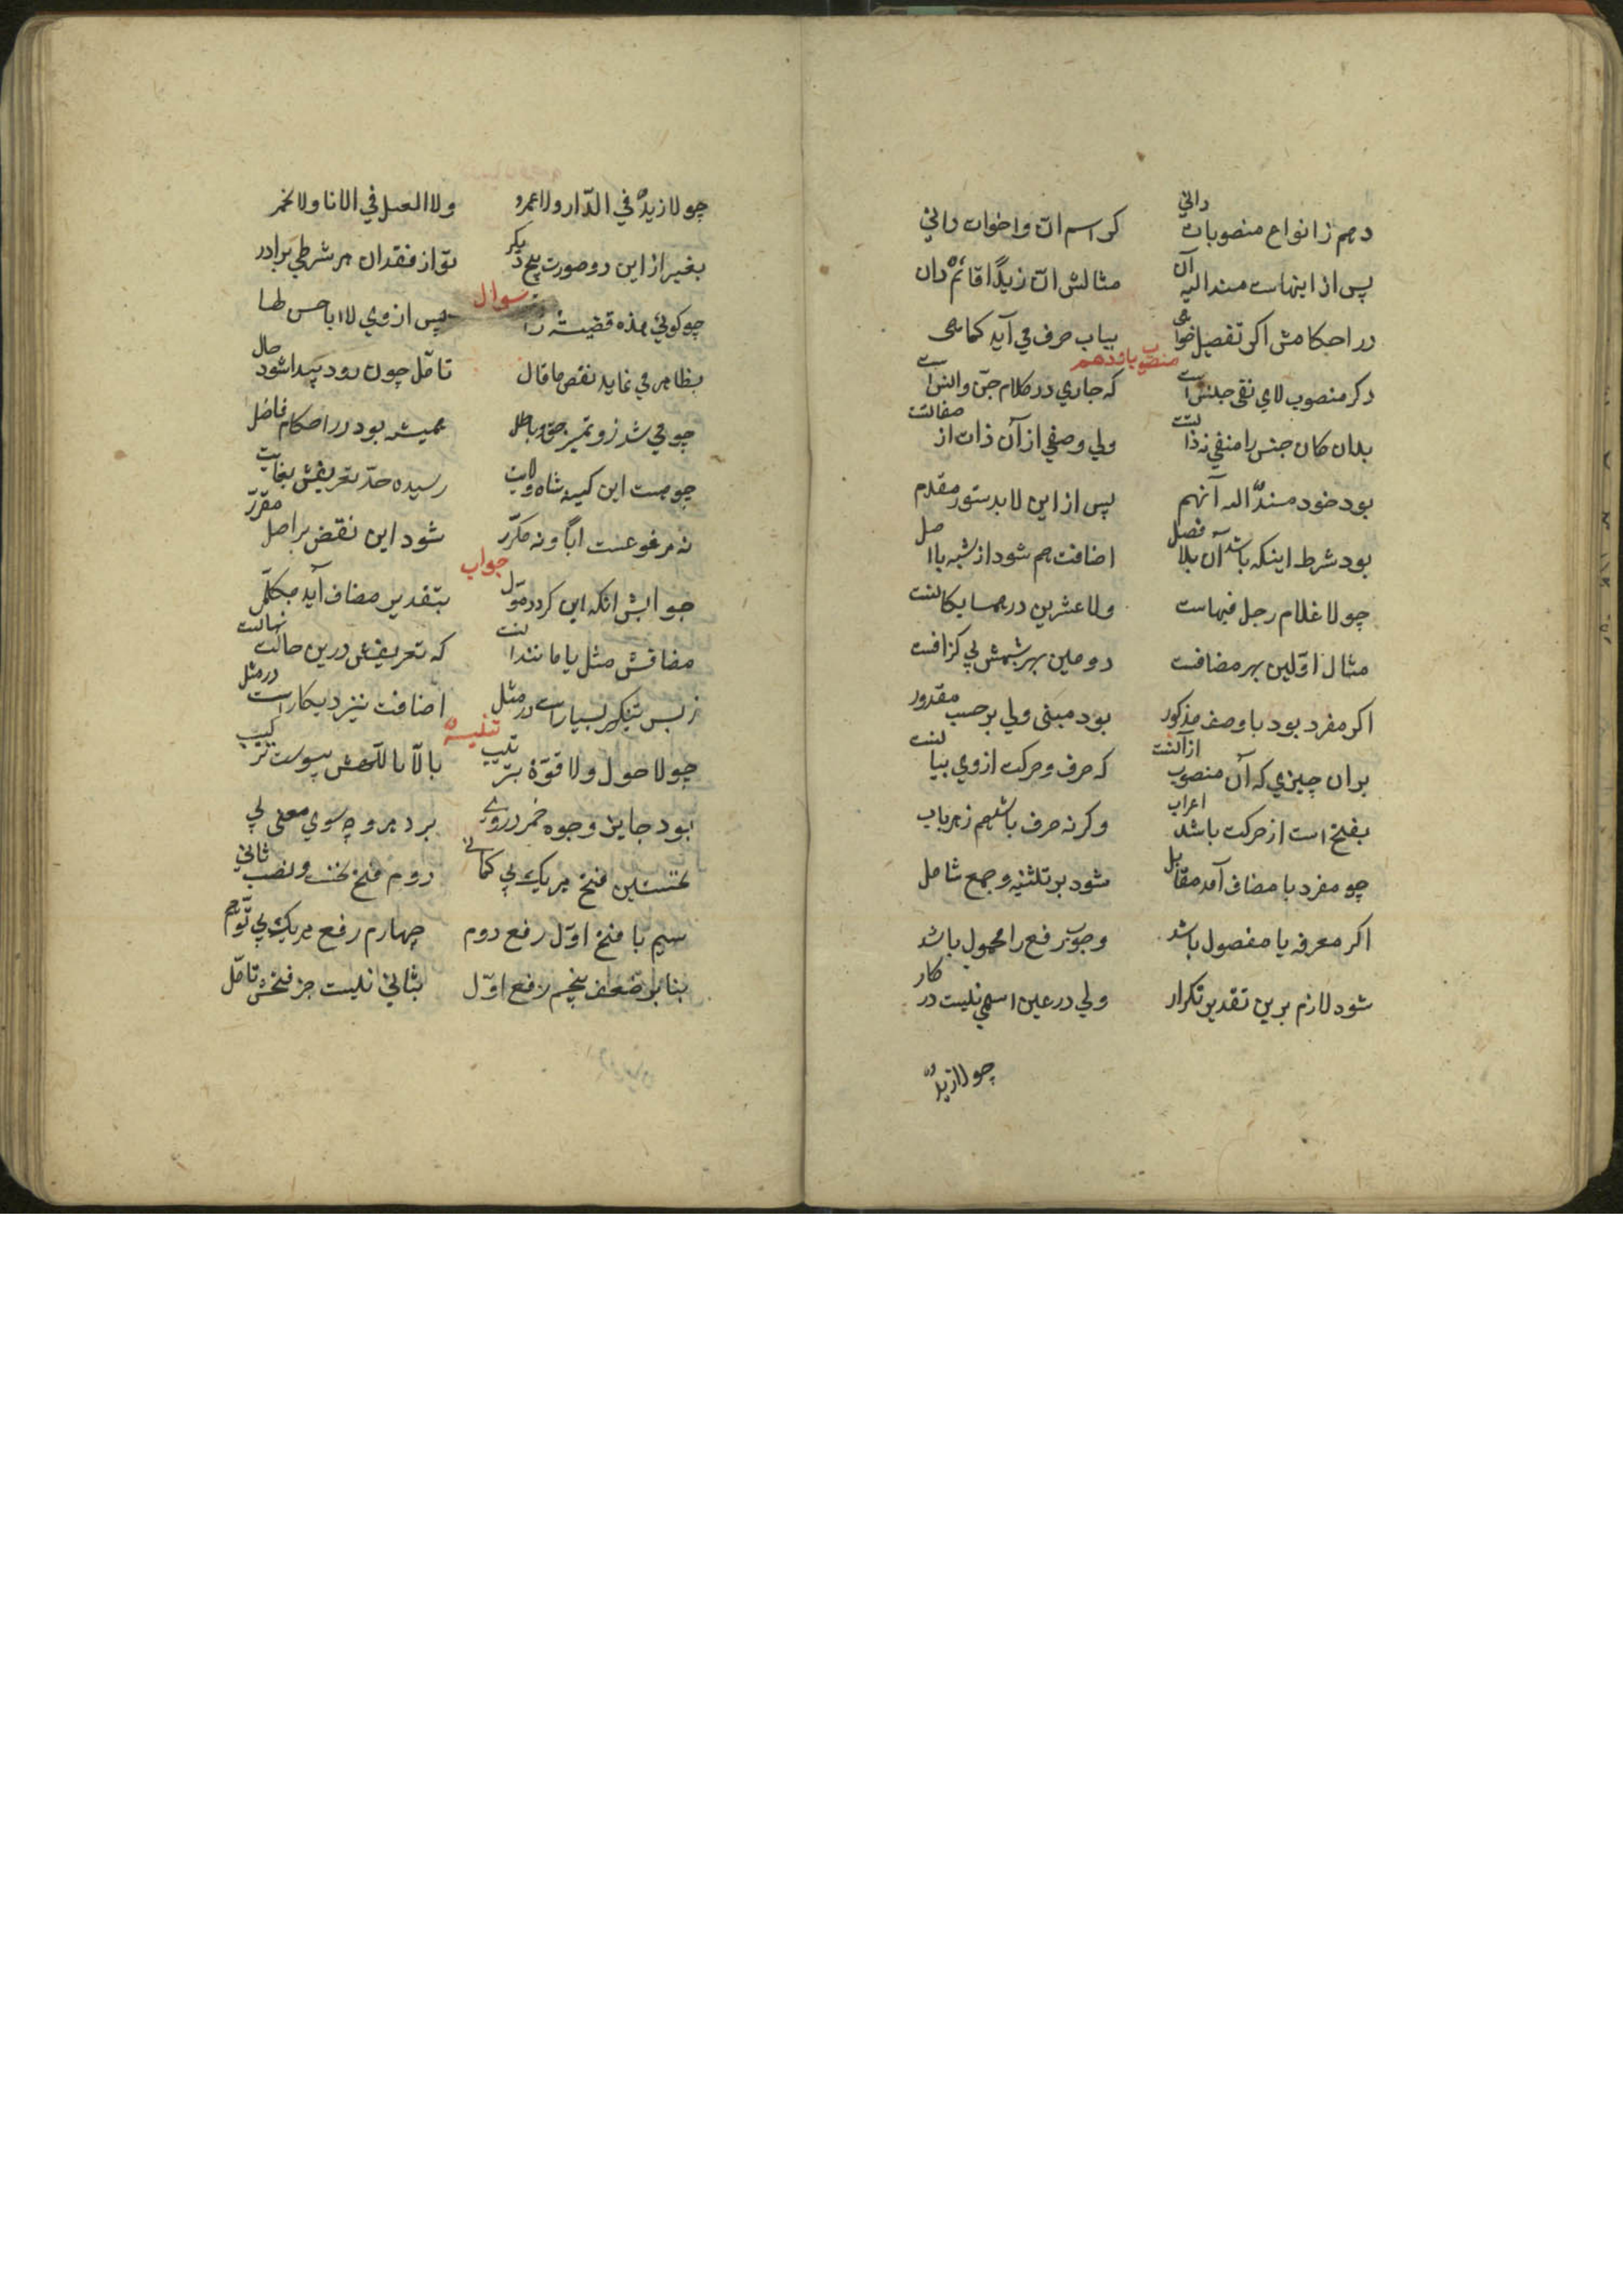 دهم ز انواع منصوبات دانی کز اسم ان و اخوات دانی
پس از اینهاست مسند الیه آن مثالش ان زیدًا قائمٌ دان
در احکامش اکر تفصیل خواهی بباب حرف می آید کماهی
منصوب یازدهم
دکر منصوب لای نفی جنس است که جاری در کلام جن و انس است
بدان کان جنس را منفی نه ذاتست ولی وصفی از آن ذات از صفاتست
بود خود مسندٌ الیه آنهم پس از این لا بدستور مقدم
بود شرط اینکه باشد آن بلا فصل اضافت هم شود از شبه با اصل
چو لا غلام رجل فیهاست ولا عشرین درهما
مثال اوّلین بهر مضافست دومین بهر شبهش بی کزافست
اکر مفرد بود با وصف مذکور بود مبنی ولی بر حسب مقدور
بران چیزی که آن منصوب از آنست که حرف و حرکت از وی
بفتح است از حرکت باشد اعراب وکرنه حرف باشد هم ز هر باب
چو مفرد با مضاف آمد مقابل شود بر تثنیه و جمع شامل
اکر معرفه یا مفصول باشد وجوب رفع را محمول باشد
شود لازم برین تقدیر تکرار ولی در عین اسمی نیست در کار
چو لا زیدٌ
چو لا زیدٌ فی الدّار ولا عمرو ولا العسل فی الانا ولا خمر
بغیر از این دو صورت هیچ دیکر تو از فقدان هر شرطی برادر
سوال
چو کوئی هذه قضیة پس از وی لا ابا حسن لها
بظاهر می نماید نقص ما قال تامّل چون رود پیدا شود حال
چو می شد زو تمیز حق و باطل همیشه بود در احکام فاضل
چو هست این کنیه شاه ولایت رسیده حدّ تعریفش بغایت
نه مرفوعست ابًا و نه مکرّر شود این نقض بر اصل مقرّر
جواب
جوابش انکه این کردد موّل بتقدیر مضاف آید
مضافش مثل یا مانند است که تعریفش درین حالت
ز بس تنکیر بسیار است در مثل اضافت نیز دیکار است در مثل
تنبیه
چو لا حول ولا قوّة بترتیب بالّا باللّهش پیوست ترکیب
بود جایز وجوه خمر در وی برد هر وجه سوی معنی پی
نخستین فتح هر یک بی کمانی دوم فتح نخست و نصب ثانی
سیم با فتح اوّل رفع دوم چهارم رفع هر یک بی توّهم
بنا بر ضعف پنجم رفع اوّل بثانی نیست جز فتحش تامّل